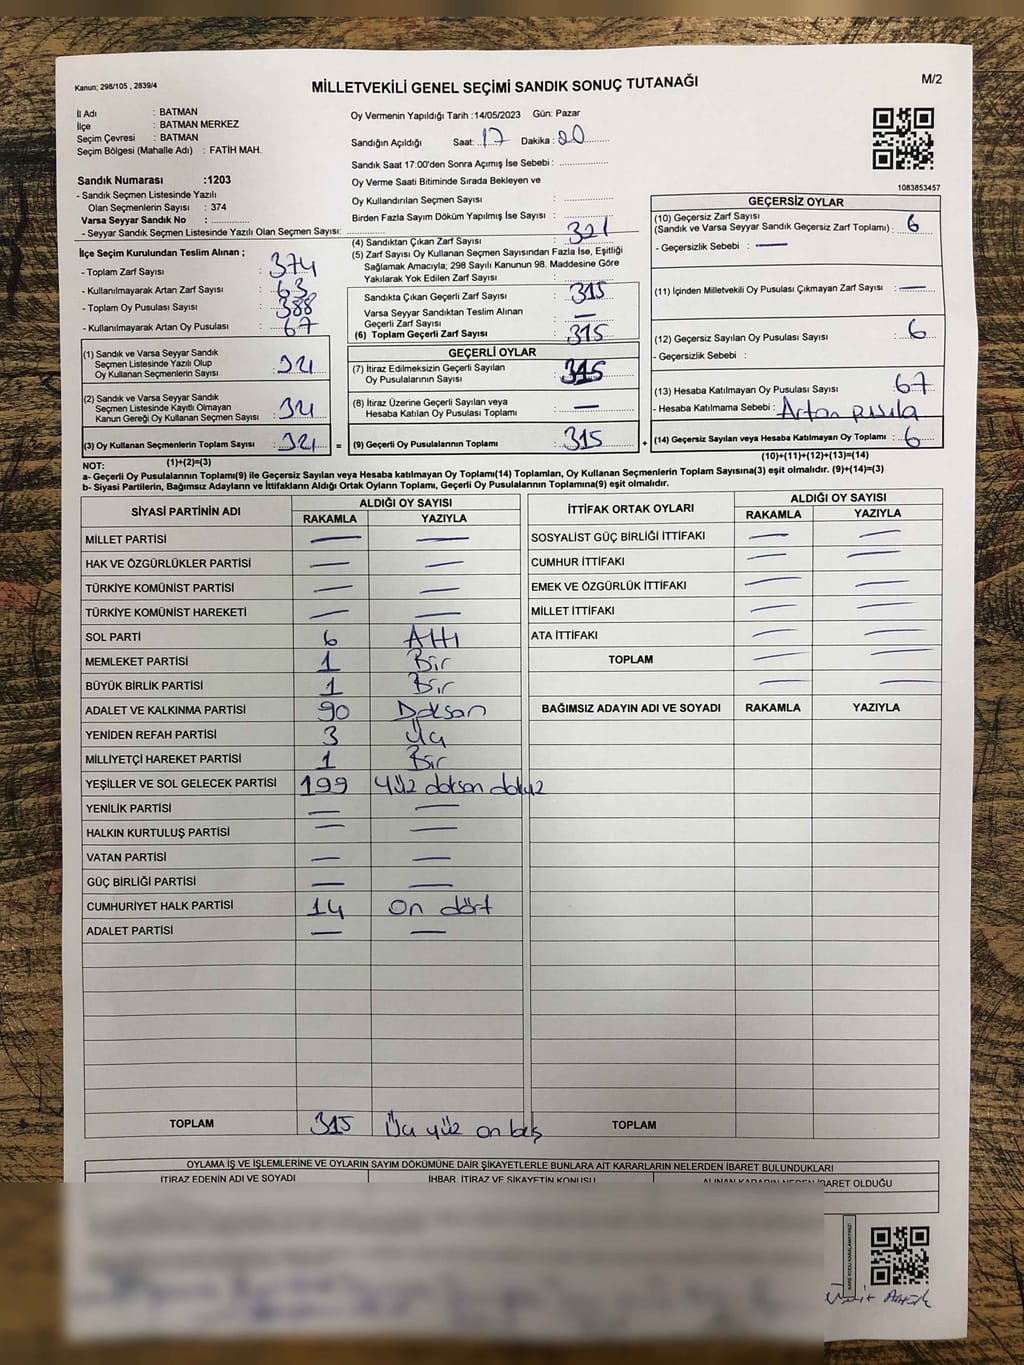 Kanun; 298/105 , 2839/4
MİLLETVEKİLİ GENEL SEÇİMİ SANDIK SONUÇ TUTANAĞI
M/2
İl Adı : BATMAN
İlçe : BATMAN MERKEZ
Seçim Çevresi : BATMAN
Seçim Bölgesi (Mahalle Adı) : FATİH MAH.
Sandık Numarası :1203
- Sandık Seçmen Listesinde Yazılı
Olan Seçmenlerin Sayısı : 374
Varsa Seyyar Sandık No : ..............
- Seyyar Sandık Seçmen Listesinde Yazılı Olan Seçmen Sayısı: ..............
Oy Vermenin Yapıldığı Tarih :14/05/2023 Gün: Pazar
Sandığın Açıldığı Saat: 17 Dakika : 20
Sandık Saat 17:00'den Sonra Açımış İse Sebebi : ..............
Oy Verme Saati Bitiminde Sırada Bekleyen ve
Oy Kullandırılan Seçmen Sayısı : ..............
Birden Fazla Sayım Döküm Yapılmış İse Sayısı : ..............
1083853457
İlçe Seçim Kurulundan Teslim Alınan ;
- Toplam Zarf Sayısı : 374
- Kullanılmayarak Artan Zarf Sayısı : 63
- Toplam Oy Pusulası Sayısı : 388
- Kullanılmayarak Artan Oy Pusulası : 67
(1) Sandık ve Varsa Seyyar Sandık
Seçmen Listesinde Yazılı Olup
Oy Kullanan Seçmenlerin Sayısı : 321
(2) Sandık ve Varsa Seyyar Sandık
Seçmen Listesinde Kayıtlı Olmayan
Kanun Gereği Oy Kullanan Seçmen Sayısı : 321
(3) Oy Kullanan Seçmenlerin Toplam Sayısı : 321 =
(1)+(2)=(3)
(4) Sandıktan Çıkan Zarf Sayısı : 321
(5) Zarf Sayısı Oy Kullanan Seçmen Sayısından Fazla İse, Eşitliği
Sağlamak Amacıyla; 298 Sayılı Kanunun 98. Maddesine Göre
Yakılarak Yok Edilen Zarf Sayısı : ..............
Sandıkta Çıkan Geçerli Zarf Sayısı : 315
Varsa Seyyar Sandıktan Teslim Alınan
Geçerli Zarf Sayısı : —
(6) Toplam Geçerli Zarf Sayısı : 315
GEÇERLİ OYLAR
(7) İtiraz Edilmeksizin Geçerli Sayılan
Oy Pusulalarının Sayısı : 315
(8) İtiraz Üzerine Geçerli Sayılan veya
Hesaba Katılan Oy Pusulası Toplamı : —
(9) Geçerli Oy Pusulalarının Toplamı : 315 +
GEÇERSİZ OYLAR
(10) Geçersiz Zarf Sayısı
(Sandık ve Varsa Seyyar Sandık Geçersiz Zarf Toplamı) : 6
- Geçersizlik Sebebi : —
(11) İçinden Milletvekili Oy Pusulası Çıkmayan Zarf Sayısı : —
(12) Geçersiz Sayılan Oy Pusulası Sayısı : 6
- Geçersizlik Sebebi :
(13) Hesaba Katılmayan Oy Pusulası Sayısı : 67
- Hesaba Katılmama Sebebi : Artan pusula
(14) Geçersiz Sayılan veya Hesaba Katılmayan Oy Toplamı : 6
(10)+(11)+(12)+(13)=(14)
NOT:
a- Geçerli Oy Pusulalarının Toplamı(9) ile Geçersiz Sayılan veya Hesaba katılmayan Oy Toplamı(14) Toplamları, Oy Kullanan Seçmenlerin Toplam Sayısına(3) eşit olmalıdır. (9)+(14)=(3)
b- Siyasi Partilerin, Bağımsız Adayların ve İttifakların Aldığı Ortak Oyların Toplamı, Geçerli Oy Pusulalarının Toplamına(9) eşit olmalıdır.
SİYASİ PARTİNİN ADI ALDIĞI OY SAYISI
RAKAMLA YAZIYLA
MİLLET PARTİSİ — —
HAK VE ÖZGÜRLÜKLER PARTİSİ — —
TÜRKİYE KOMÜNİST PARTİSİ — —
TÜRKİYE KOMÜNİST HAREKETİ — —
SOL PARTİ 6 Altı
MEMLEKET PARTİSİ 1 Bir
BÜYÜK BİRLİK PARTİSİ 1 Bir
ADALET VE KALKINMA PARTİSİ 90 Doksan
YENİDEN REFAH PARTİSİ 3 Üç
MİLLİYETÇİ HAREKET PARTİSİ 1 Bir
YEŞİLLER VE SOL GELECEK PARTİSİ 199 Yüz doksan dokuz
YENİLİK PARTİSİ — —
HALKIN KURTULUŞ PARTİSİ — —
VATAN PARTİSİ — —
GÜÇ BİRLİĞİ PARTİSİ — —
CUMHURİYET HALK PARTİSİ 14 on dört
ADALET PARTİSİ — —
TOPLAM 315 Üç yüz on beş
İTTİFAK ORTAK OYLARI ALDIĞI OY SAYISI
RAKAMLA YAZIYLA
SOSYALİST GÜÇ BİRLİĞİ İTTİFAKI — —
CUMHUR İTTİFAKI — —
EMEK VE ÖZGÜRLÜK İTTİFAKI — —
MİLLET İTTİFAKI — —
ATA İTTİFAKI — —
TOPLAM — —
— —
BAĞIMSIZ ADAYIN ADI VE SOYADI RAKAMLA YAZIYLA
TOPLAM
OYLAMA İŞ VE İŞLEMLERİNE VE OYLARIN SAYIM DÖKÜMÜNE DAİR ŞİKAYETLERLE BUNLARA AİT KARARLARIN NELERDEN İBARET BULUNDUKLARI
İTİRAZ EDENİN ADI VE SOYADI İHBAR, İTİRAZ VE ŞİKAYETİN KONUSU ALINAN KARARIN NEDEN İBARET OLDUĞU